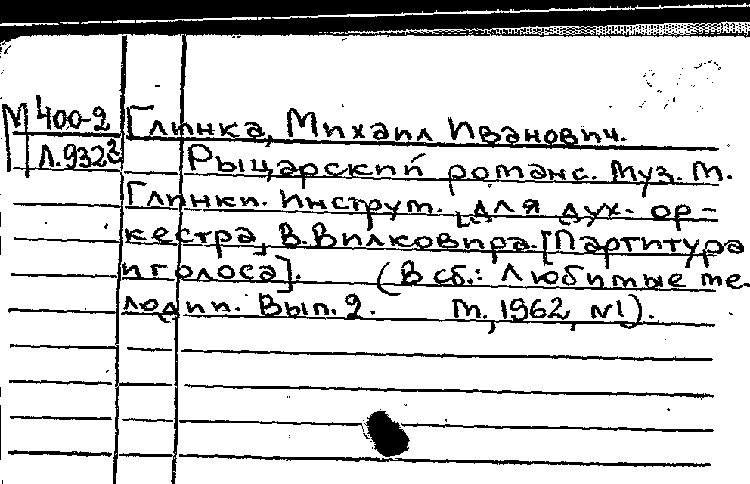 М 400-2 Глинка, Михаил Иванович.
Л.9322 Рыцарский романс. Муз. М.
Глинки. Инструм. [для дух. ор-
кестра] В. Вилковира. [Партитура
и голоса]. (В сб.: Любимые ме-
лодии. Вып. 2. М., 1962, №1).